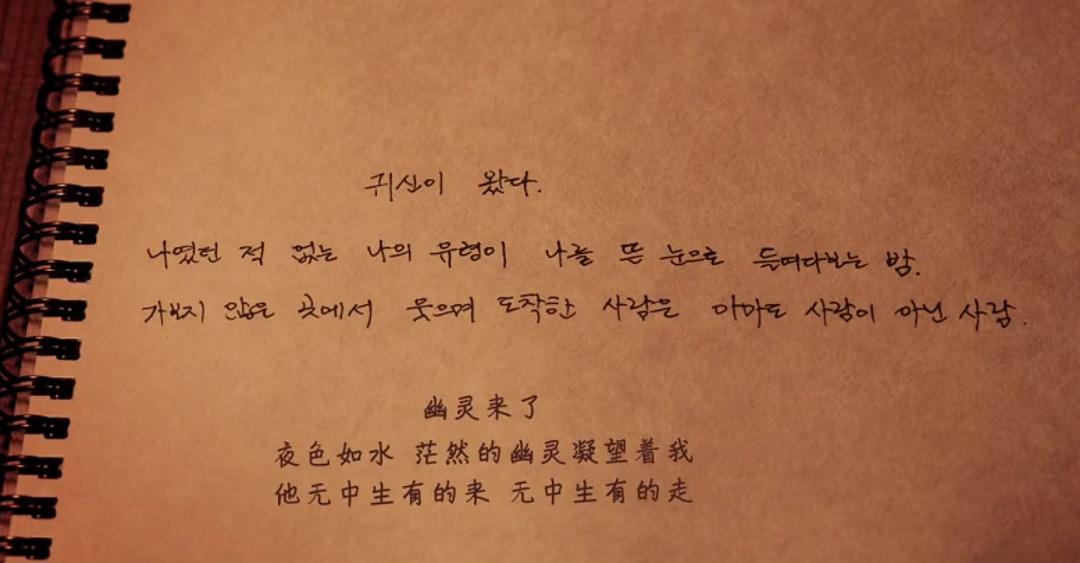 귀신이 왔다.
나였던 적 없는 나의 유형이 나를 뜬 눈으로 들여다보는 밤.
가보지 않은 곳에서 웃으며 도착한 사람은 아마도 사람이 아닌 사람.
幽灵来了
夜色如水 茫然的幽灵凝望着我
他无中生有的来 无中生有的走